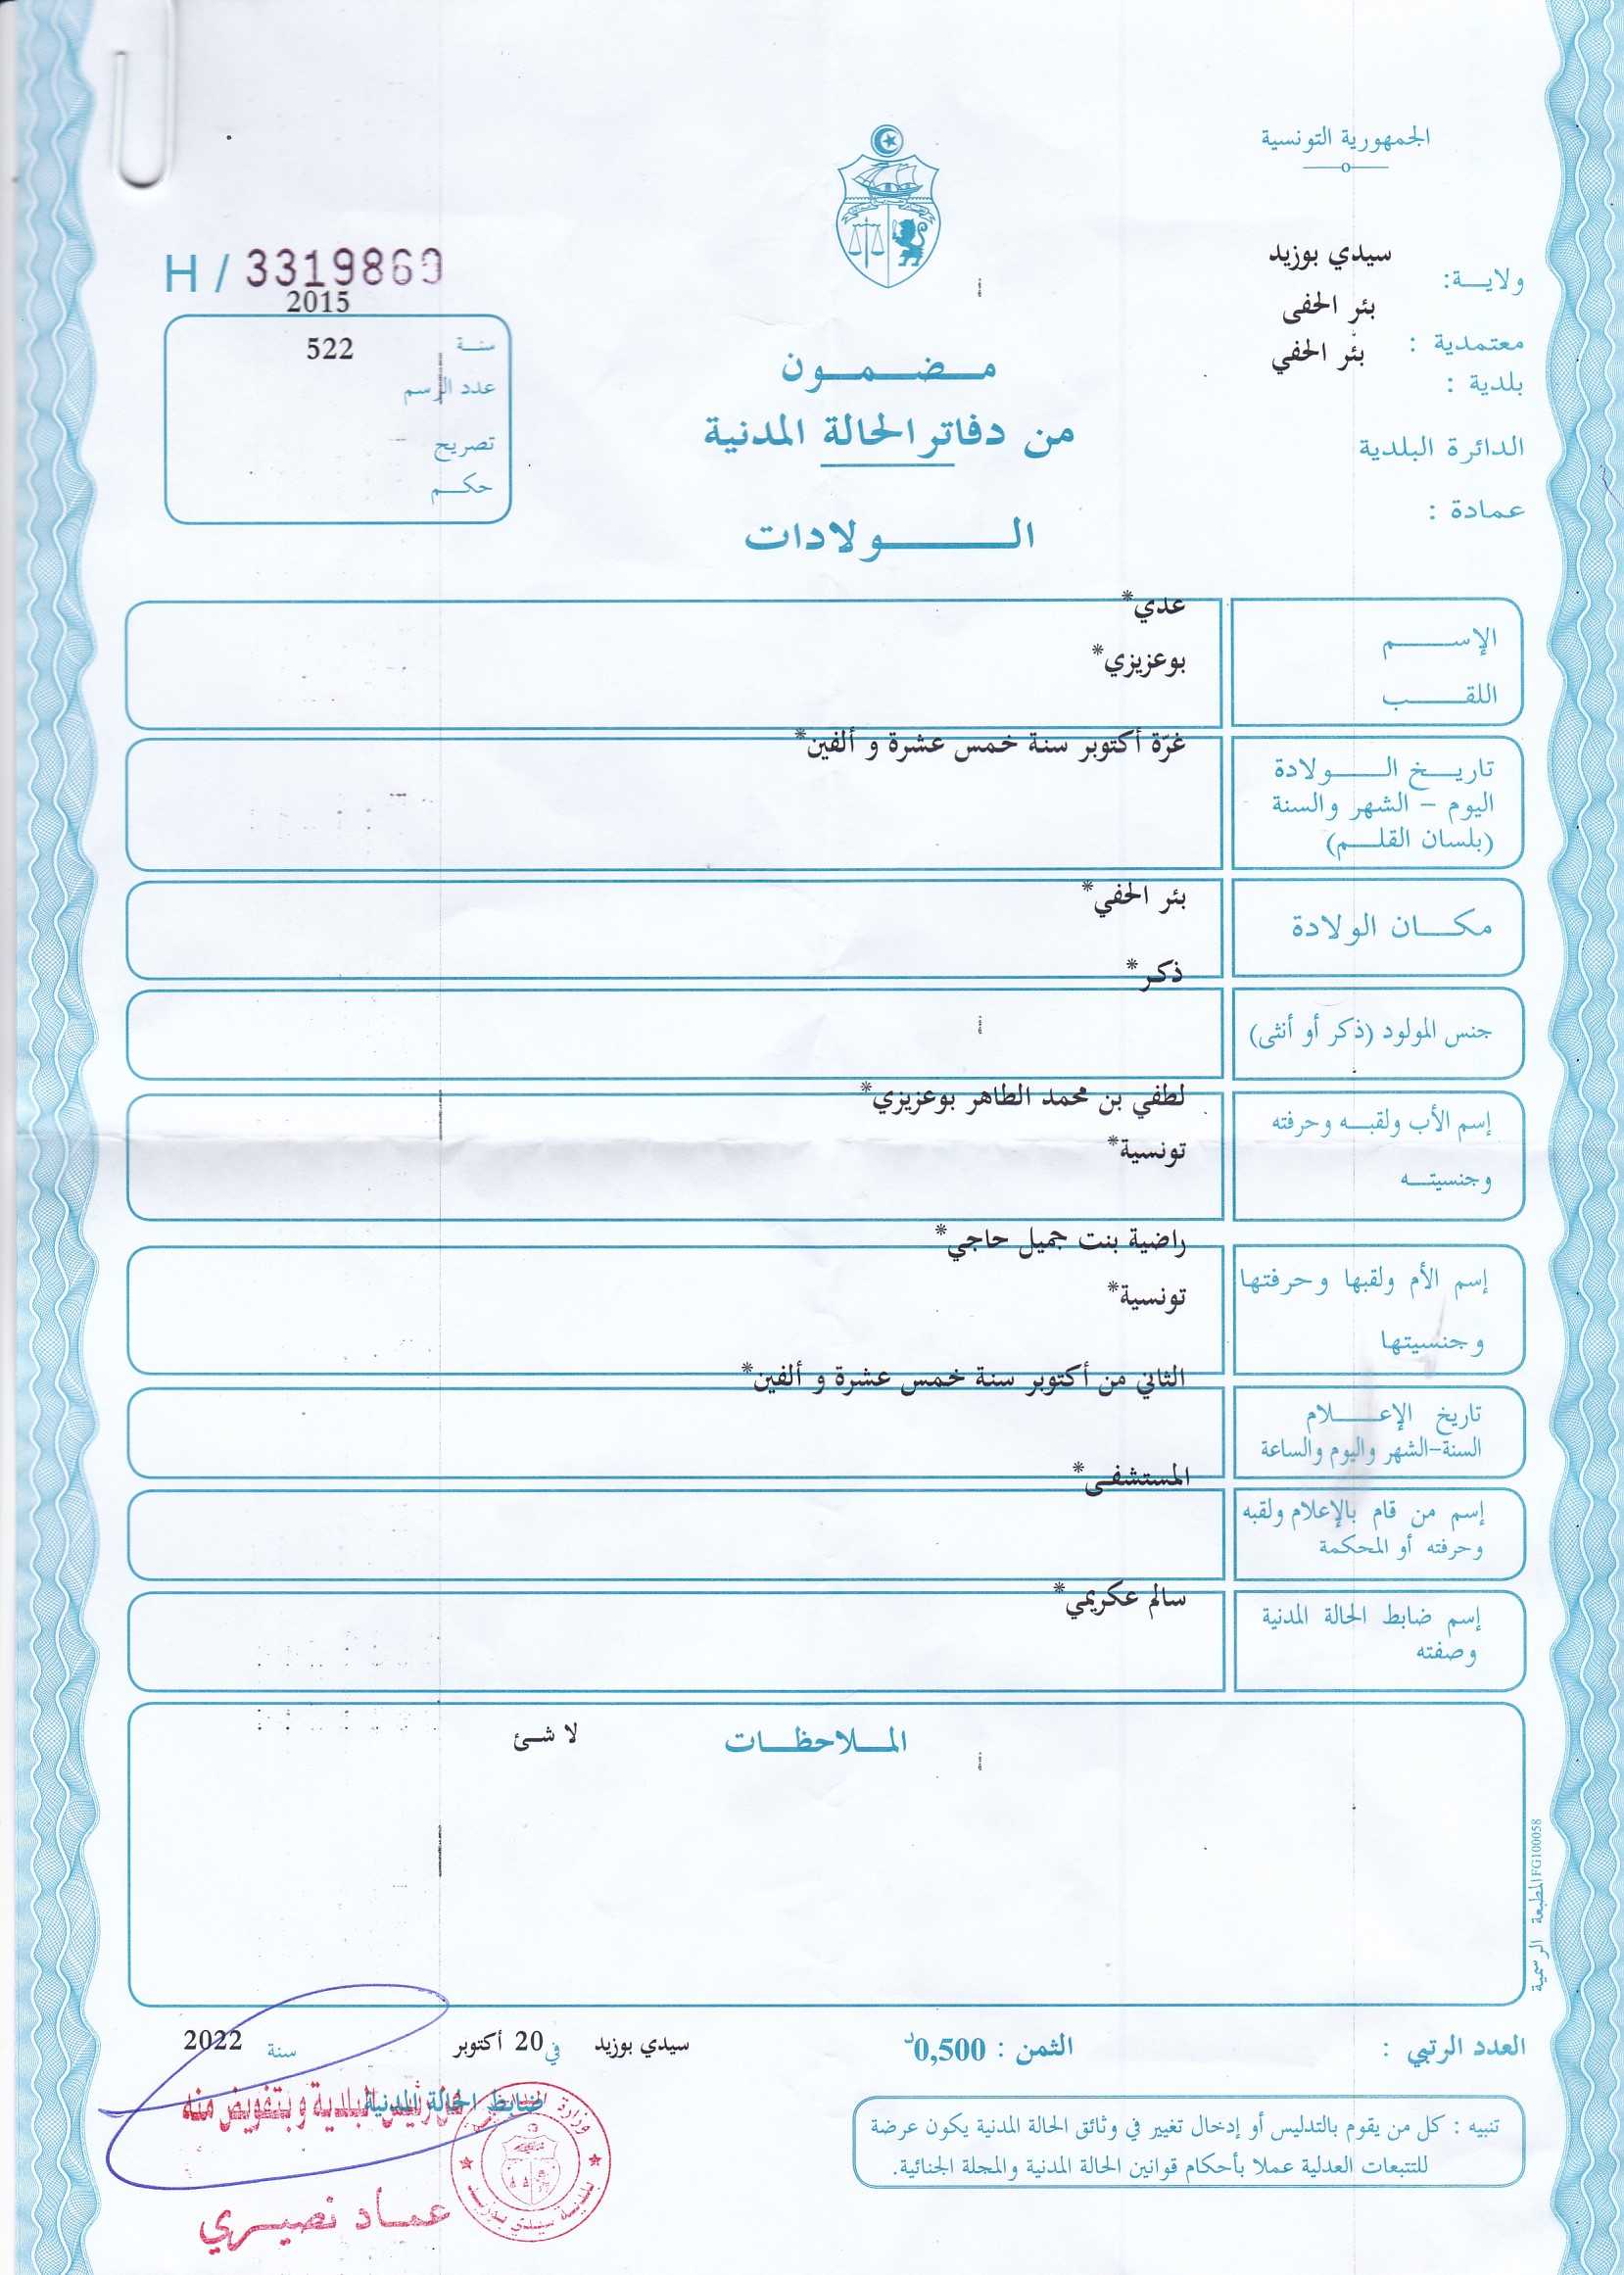 الجمهورية التونسية
ولايـــة: سيدي بوزيد
معتمدية : بئر الحفى
بلدية : بئر الحفي
الدائرة البلدية
عمادة :
H / 3319869
2015
سنـــة 522
عدد الرسم
تصريح
حكـــم
مــضــمــون
من دفاتر الحالة المدنية
الـــــولادات
الإســـــم عدي*
اللقـــــب بوعزيزي*
تاريـــخ الـــــولادة غرّة أكتوبر سنة خمس عشرة و ألفين*
اليوم – الشهر والسنة
(بلسان القلـــم)
مكـــان الولادة بئر الحفي*
جنس المولود (ذكر أو أنثى) ذكر*
إسم الأب ولقبـــه وحرفته لطفي بن محمد الطاهر بوعزيزي*
وجنسيتـــه تونسية*
إسم الأم ولقبها وحرفتها راضية بنت جميل حاجي*
وجنسيتها تونسية*
تاريخ الإعـــــلام الثاني من أكتوبر سنة خمس عشرة و ألفين*
السنة–الشهر واليوم والساعة
إسم من قام بالإعلام ولقبه المستشفى*
وحرفته أو المحكمة
إسم ضابط الحالة المدنية سالم عكريمي*
وصفته
المــلاحظــات لا شئ
المطبعة الرسمية FG100058
العدد الرتبي :
الثمن : 0,500د
سيدي بوزيد في 20 أكتوبر سنة 2022
ضابط الحالة المدنية
عن رئيس البلدية وبتفويض منه
بلدية سيدي بوزيد
عماد نصيري
تنبيه : كل من يقوم بالتدليس أو إدخال تغيير في وثائق الحالة المدنية يكون عرضة
للتتبعات العدلية عملا بأحكام قوانين الحالة المدنية والمجلة الجنائية.